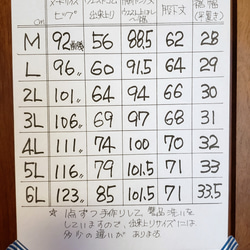 cm ヒップ 出来上り 股下丈 裾幅 (平置き)
M 92 56 88.5 62 28
L 96〃 60 91.5 64 29
2L 101〃 64 94 66 30
3L 106〃 69 97 68 31
4L 111〃 74 100 70 32
5L 116〃 79 101.5 71 33
6L 123〃 85 101.5 71 33.5
☆ 1点ずつ手作りして、製品洗いを
していますので、出来上りサイズには
多少の違いが あります